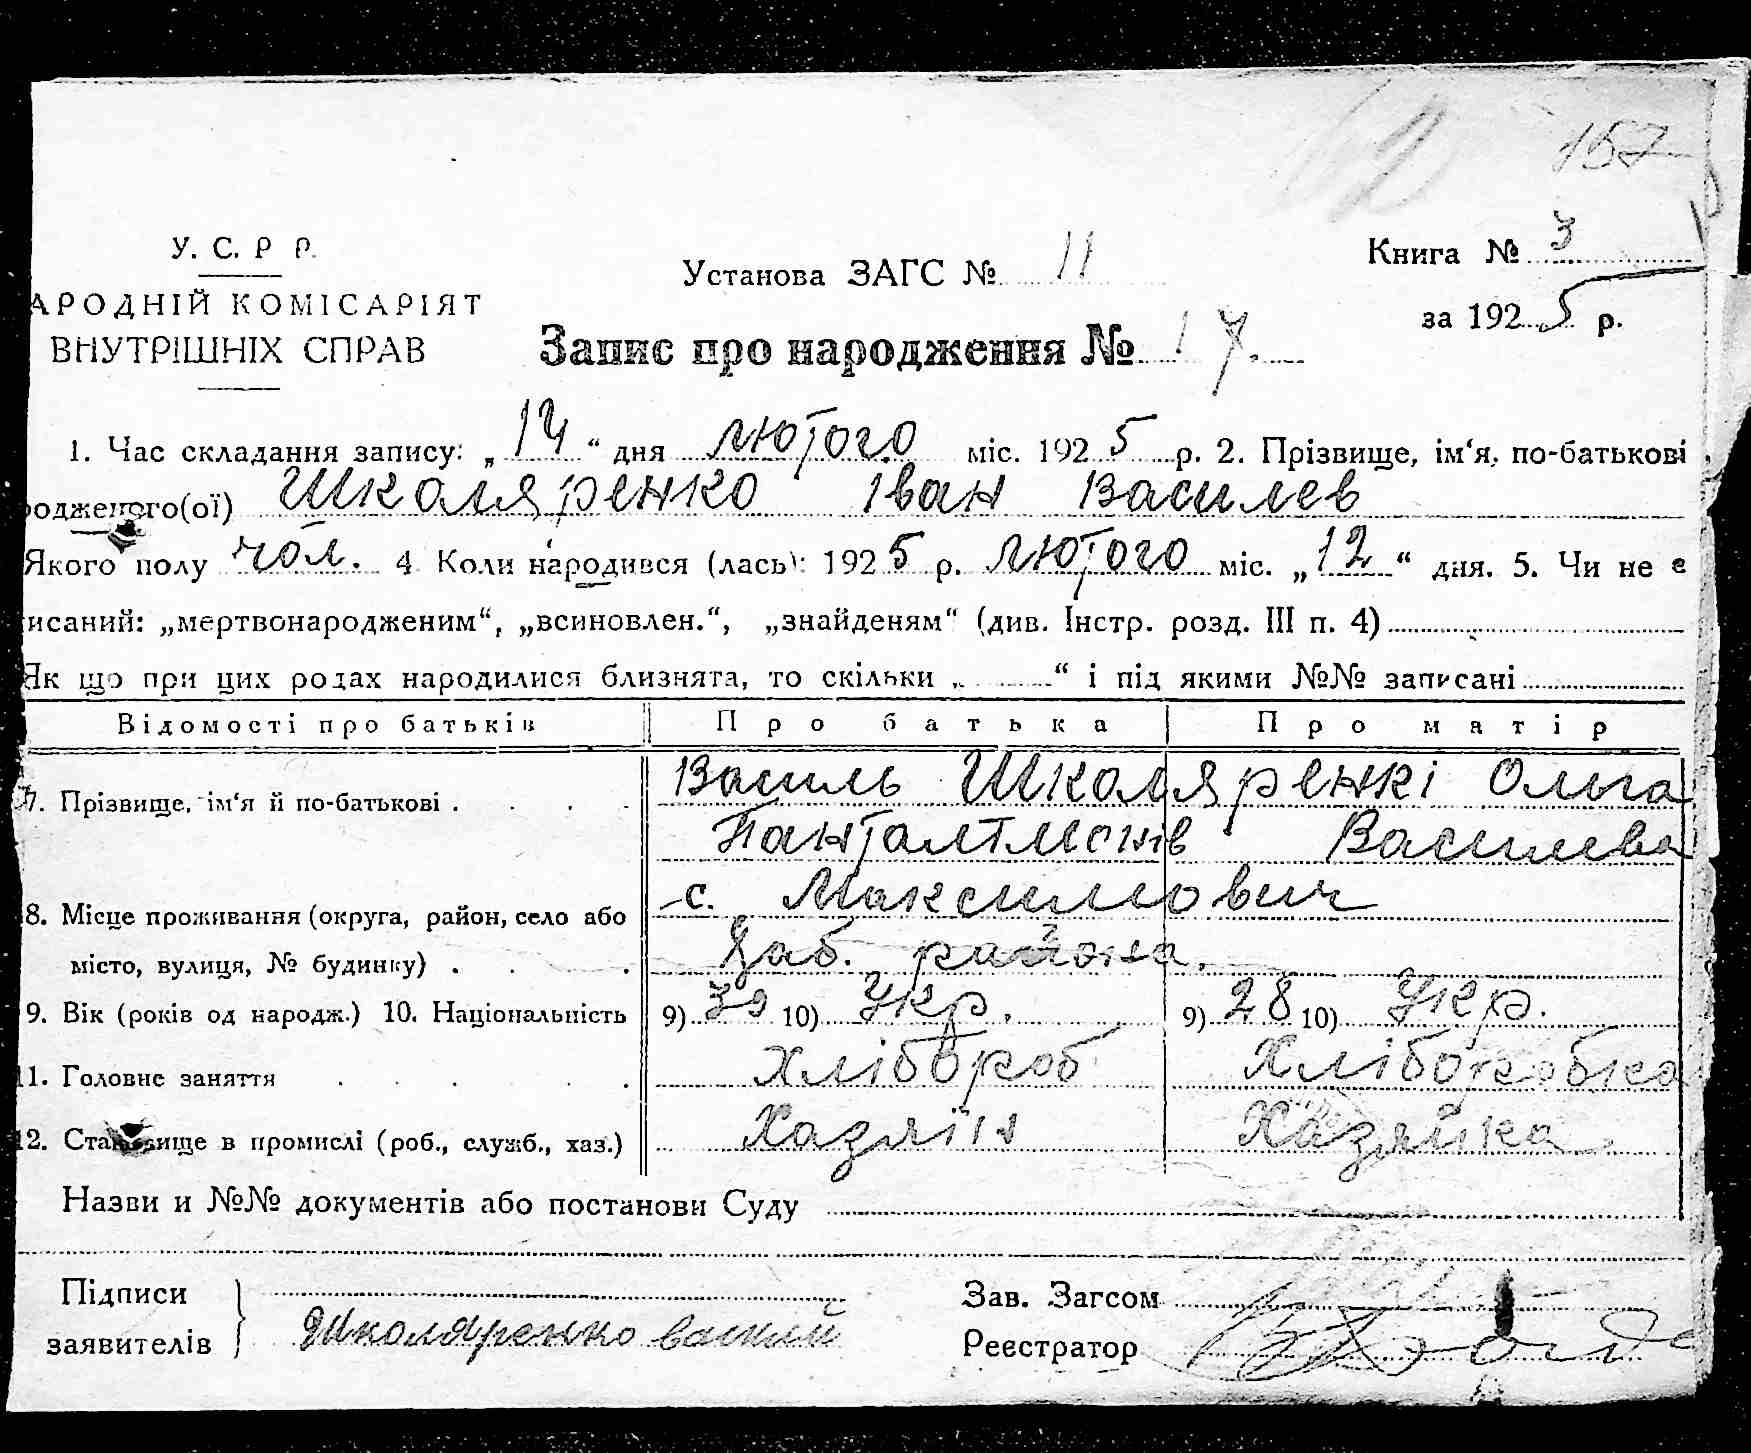 157
У. С. Р Р.
Установа ЗАГС № 11
Книга № 3
АРОДНІЙ КОМІСАРІЯТ
за 1925 р.
ВНУТРІШНІХ СПРАВ
Запис про народження № 17.
1. Час складання запису: „14“ дня лютого міс. 1925 р. 2. Прізвище, ім‘я, по-батькові
родженого(ої) Школяренко Іван Василев
Якого полу чол. 4 Коли народився (лась): 1925 р. лютого міс. „12“ дня. 5. Чи не є
исаний: „мертвонародженим“, „всиновлен.“, „знайденям“ (див. Інстр. розд. III п. 4)
Як що при цих родах народилися близнята, то скільки „ “ і під якими №№ записані
Відомості про батьків Про батька Про матір
7. Прізвище, ім‘я й по-батькові . . . . Василь Школяренкі Ольга
Василева
8. Місце проживання (округа, район, село або с. Максимович
місто, вулиця, № будинку) . . . района.
9. Вік (років од народж.) 10. Національність 9) 30 10) Укр. 9) 28 10) Укр.
11. Головне заняття . . . . . . Хлібороб Хліборобка
12. Становище в промислі (роб., служб., хаз.) Хазяїн Хазяйка
Назви и №№ документів або постанови Суду
Підписи
заявителів Школяренко василий
Зав. Загсом
Реєстратор